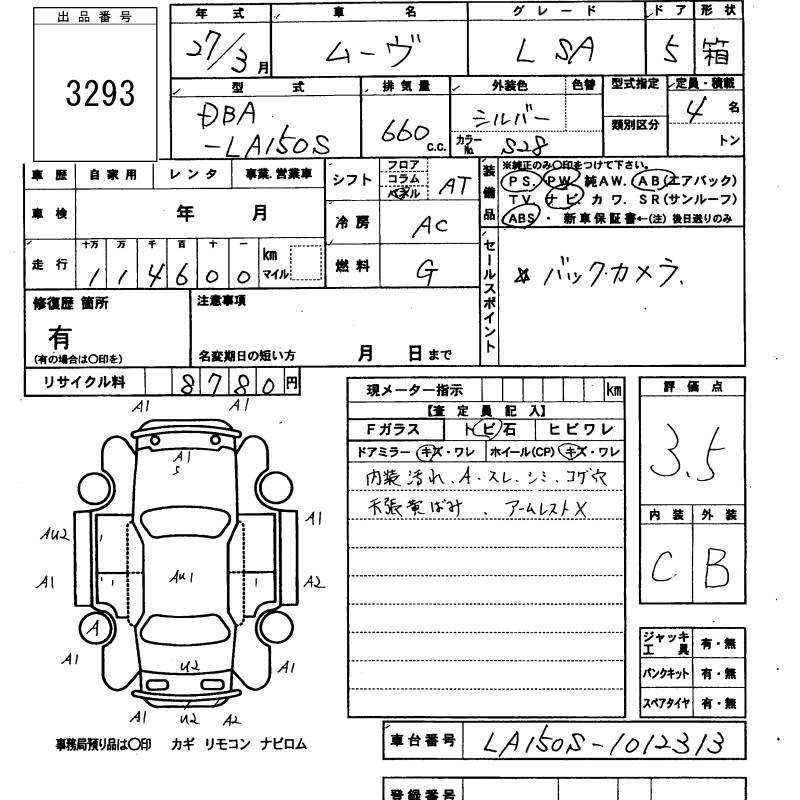 出品番号
3293
年式 車名 グレード ドア 形状
27/3月 ムーヴ L SA 5 箱
型式 排気量 外装色 色替 型式指定 定員・積載
DBA
-LA150S
660 c.c.
シルバー
カラーNo. S28
類別区分
4 名
トン
車歴 自家用 レンタ 事業.営業車
車検 年 月
走行 十万 万 千 百 十 一
114600 km マイル
シフト フロア コラム AT
冷房 AC
燃料 G
装備品
※純正のみ〇印をつけて下さい。
PS. PW. 純AW. AB(エアバック)
TV. ナビ. カワ. SR(サンルーフ)
ABS ・ 新車保証書←(注)後日送りのみ
セールスポイント
☆ バックカメラ.
修復歴 箇所
有
(有の場合は〇印を)
注意事項
名変期日の短い方 月 日まで
リサイクル料 8780円
現メーター指示 km
【査定員記入】
Fガラス トビ石 ヒビワレ
ドアミラー キズ・ワレ ホイール(CP) キズ・ワレ
内装汚れ.A.スレ.シミ.コゲ穴
天張黄ばみ 、 アームレストX
評価点
3.5
内装 外装
C B
A1 A1
A1
S
A1
AU2
AU1
A1 A2
A
A1 U2 A1
A1 U2 A2
ジャッキ工具 有・無
パンクキット 有・無
スペアタイヤ 有・無
事務局預り品は〇印 カギ リモコン ナビロム
車台番号 LA150S-1012313
登録番号